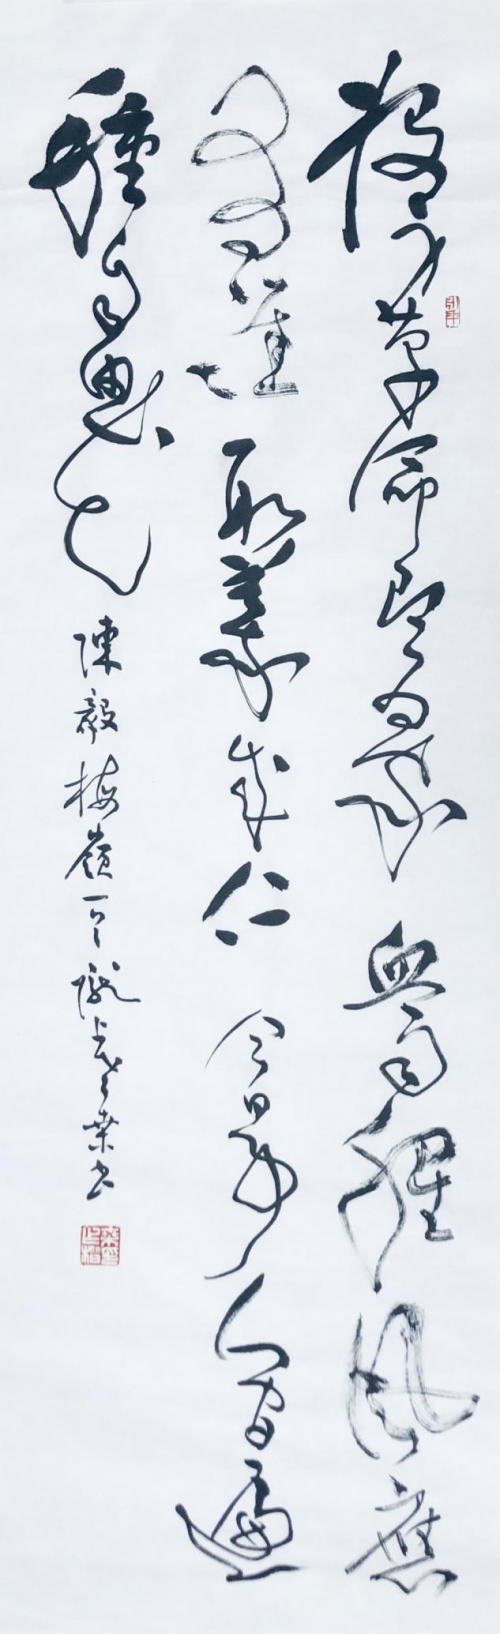 投身革命即為家 血雨腥風應
有涯 取義成仁 今日事 人間遍
種自由花
陳毅梅嶺 隴上 書